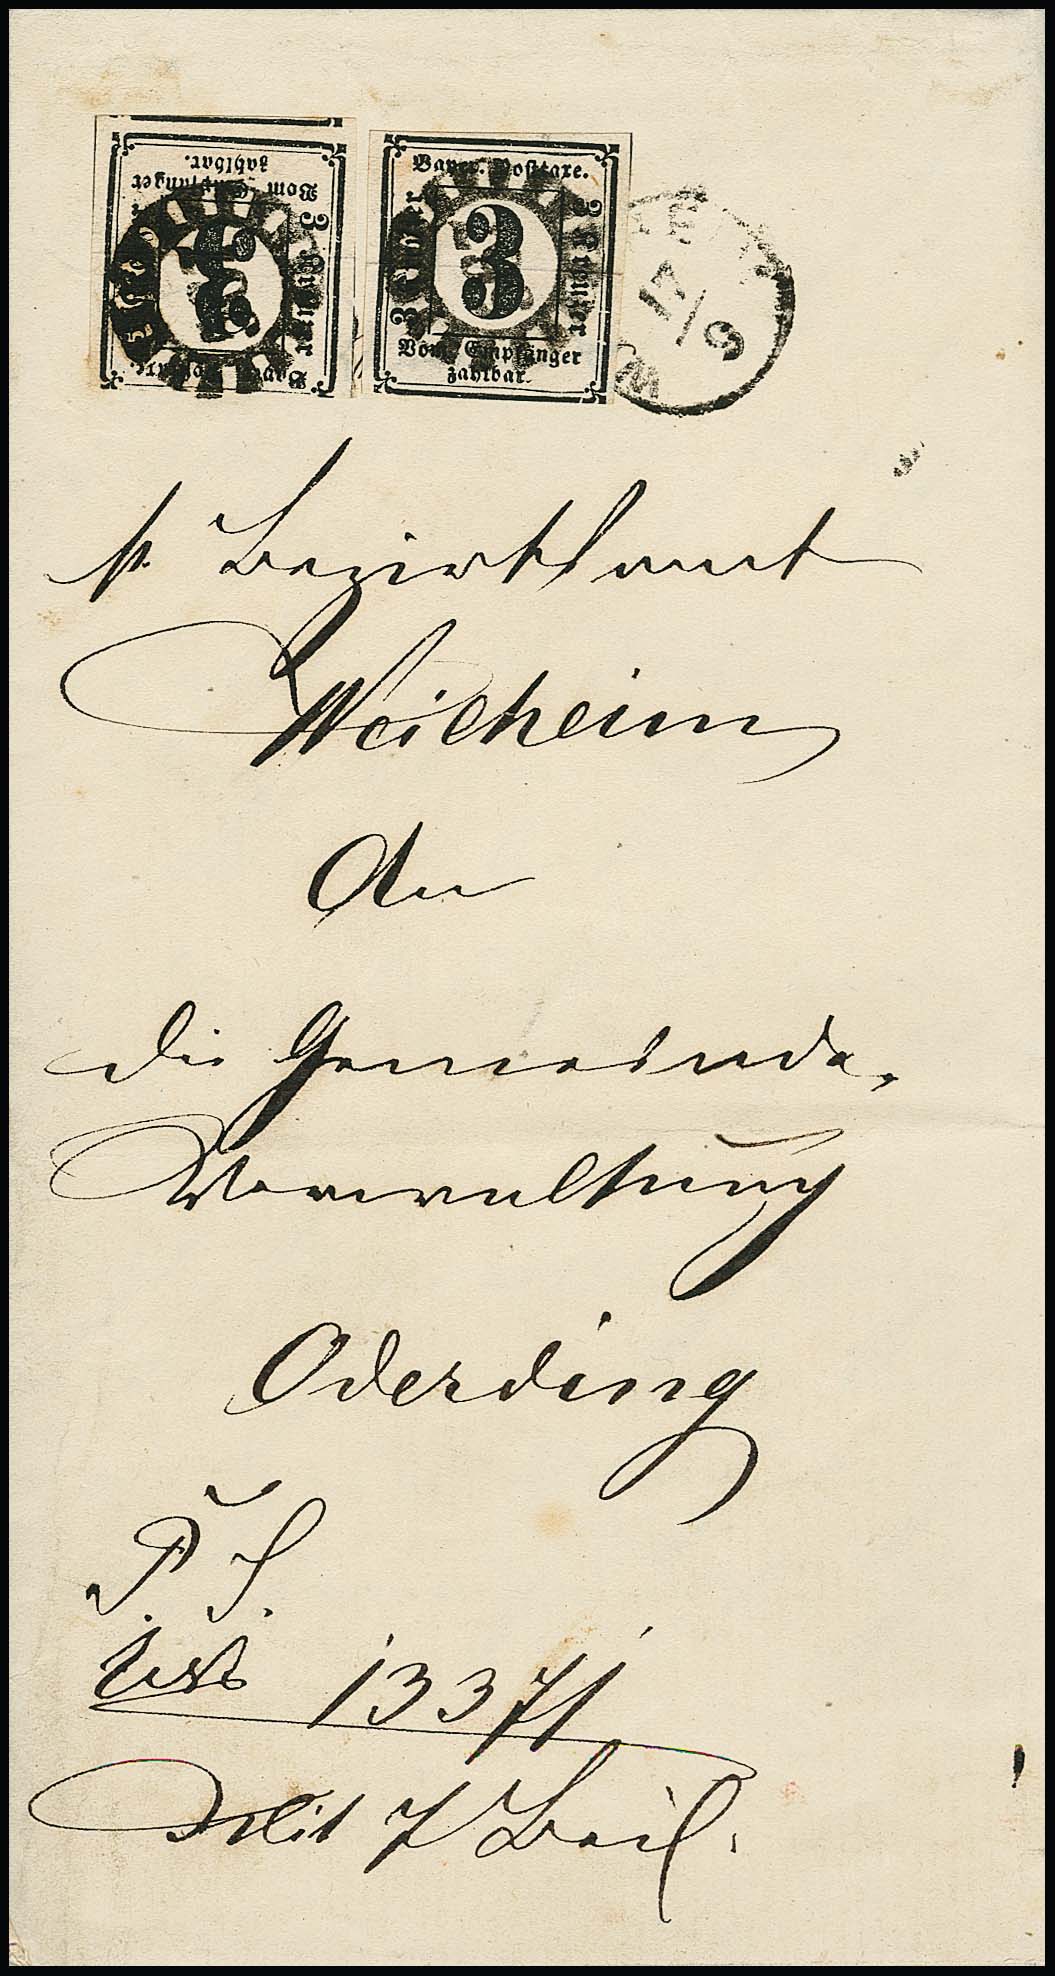 Bayer. Posttaxe.
3 Kreuzer
3
3 Kreuzer
Vom Empfänger
zahlbar.
Bayer. Posttaxe.
3 Kreuzer
3
3 Kreuzer
Vom Empfänger
zahlbar.
17/9
k. Bezirksamt
Weilheim
An
die Gemeinde-
Verwaltung
Oderding
P. S.
13371
Mit 7 Beil.